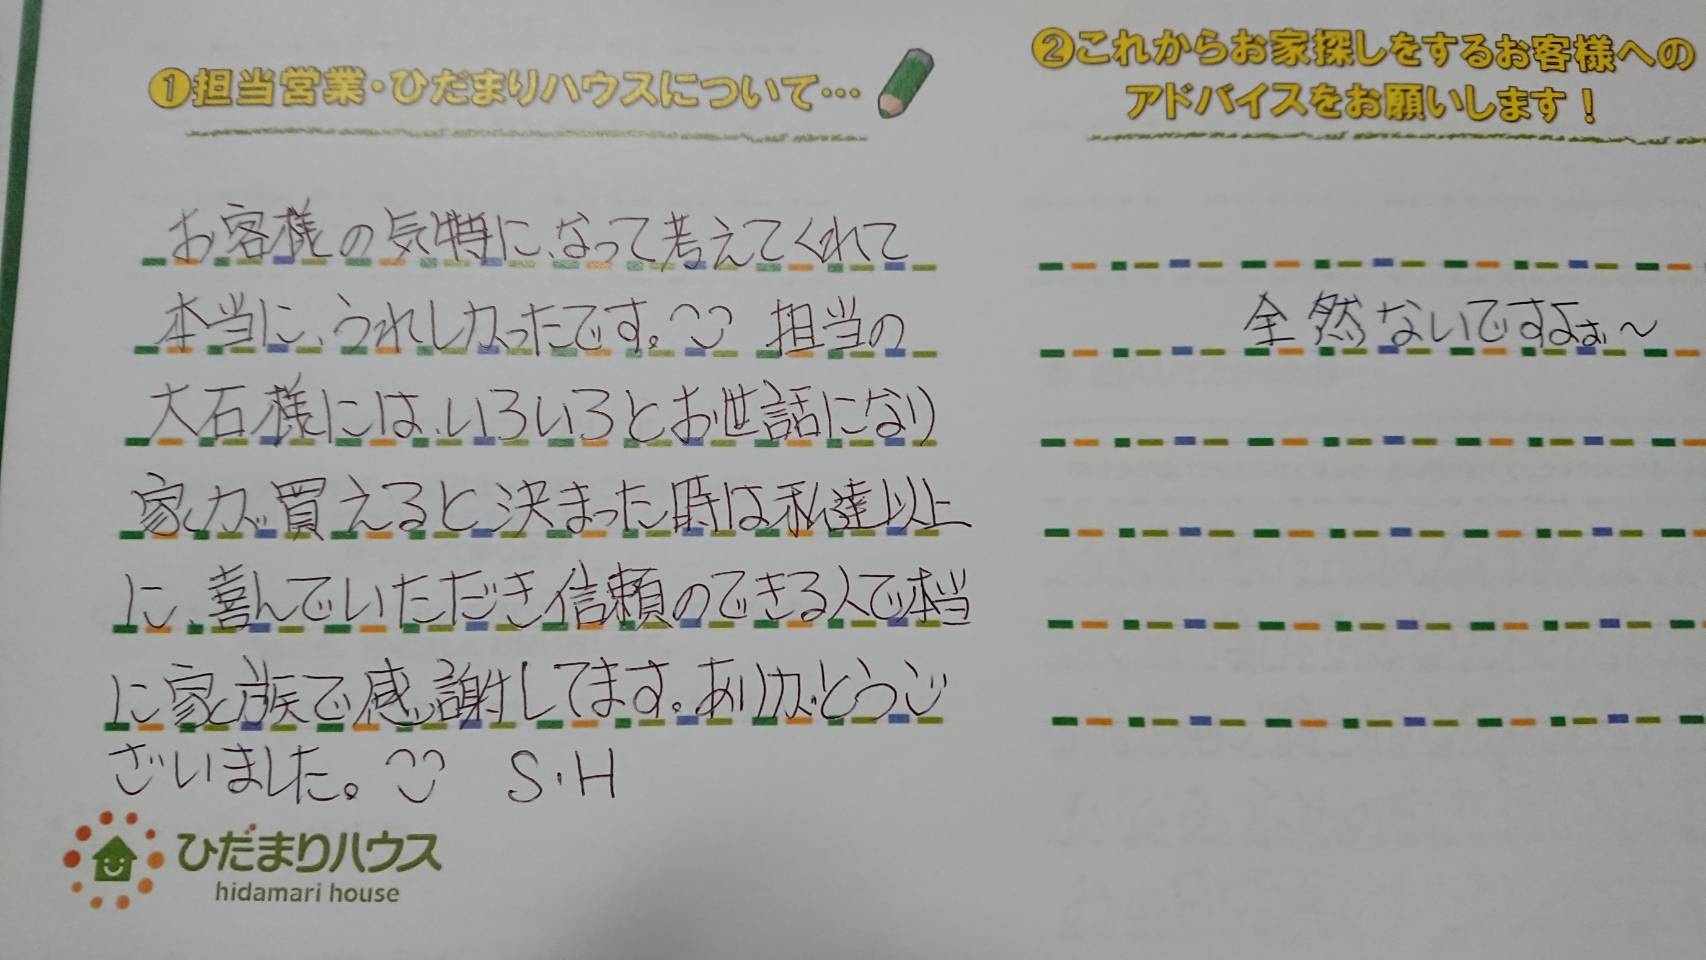 ❶担当営業・ひだまりハウスについて…
お客様の気持に、なって考えてくれて
本当に、うれしかったです。 担当の
大石様には、いろいろとお世話になり
家が買えると決まった時は私達以上
に、喜んでいただき信頼のできる人で本当
に家族で感謝してます。ありがとうご
ざいました。 S・H
ひだまりハウス
hidamari house
❷これからお家探しをするお客様への
アドバイスをお願いします！
全然ないですよぉ～